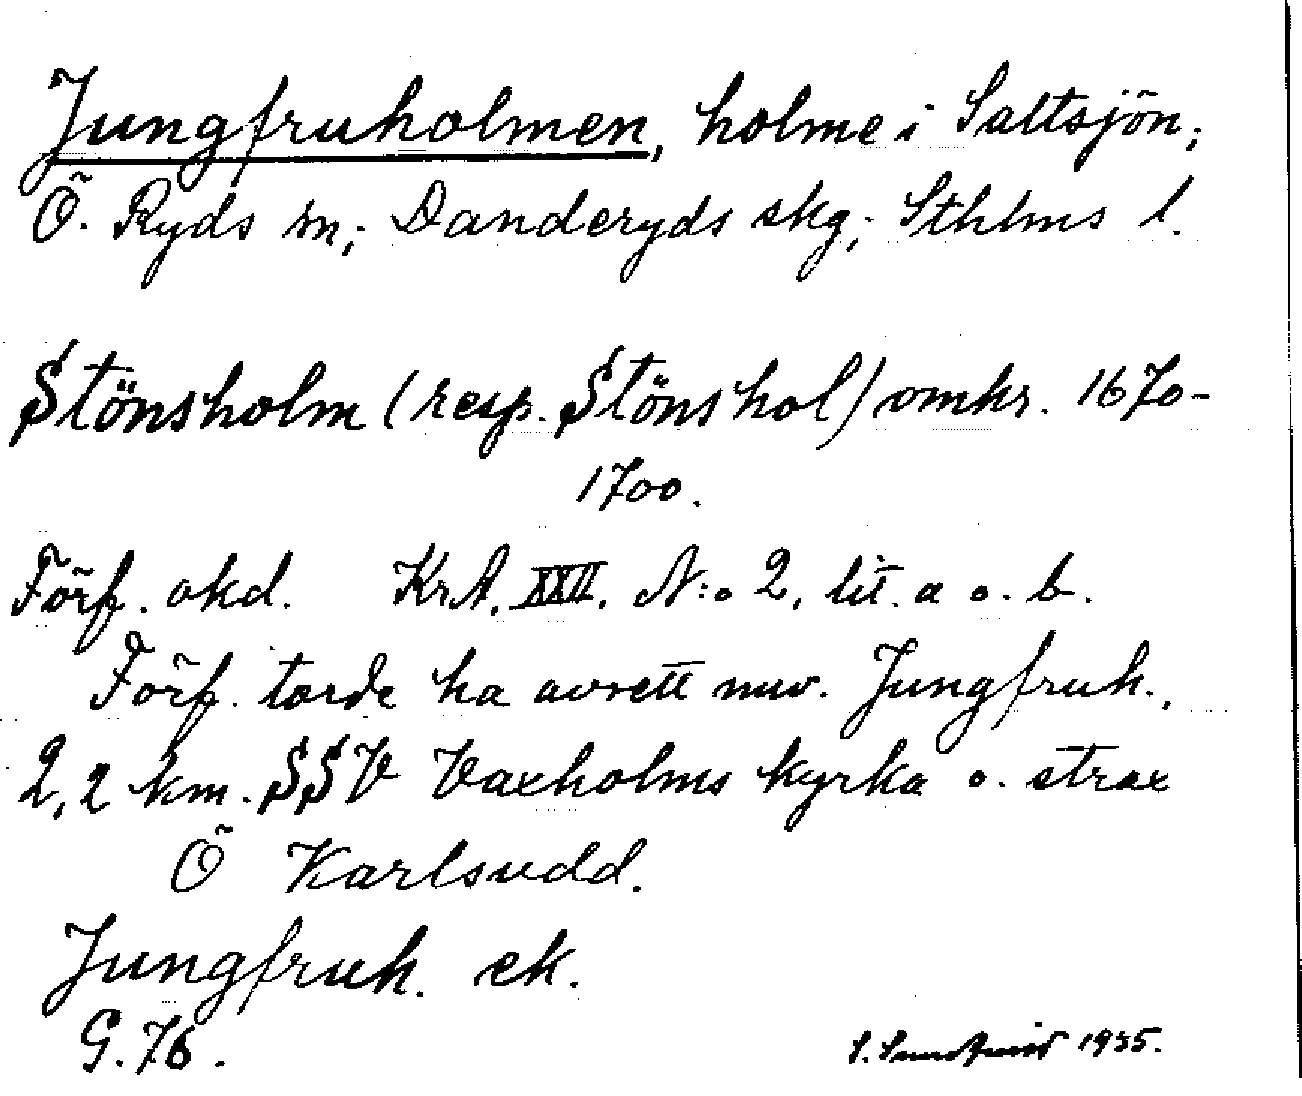 Jungfruholmen, holme i Saltsjön;
Ö. Ryds sn; Danderyds skg; Sthlms l.
Stönsholm (resp. Stönshol) omkr. 1670-
1700.
Förf. okd. KrA. XXII. N:o 2, lit. a o. b.
Förf. torde ha avsett nuv. Jungfruh.,
2,2 km. SSV Vaxholms kyrka o. strax
Ö Karlsudd.
Jungfruh. ek.
G. 76.
S. Sundqvist 1935.